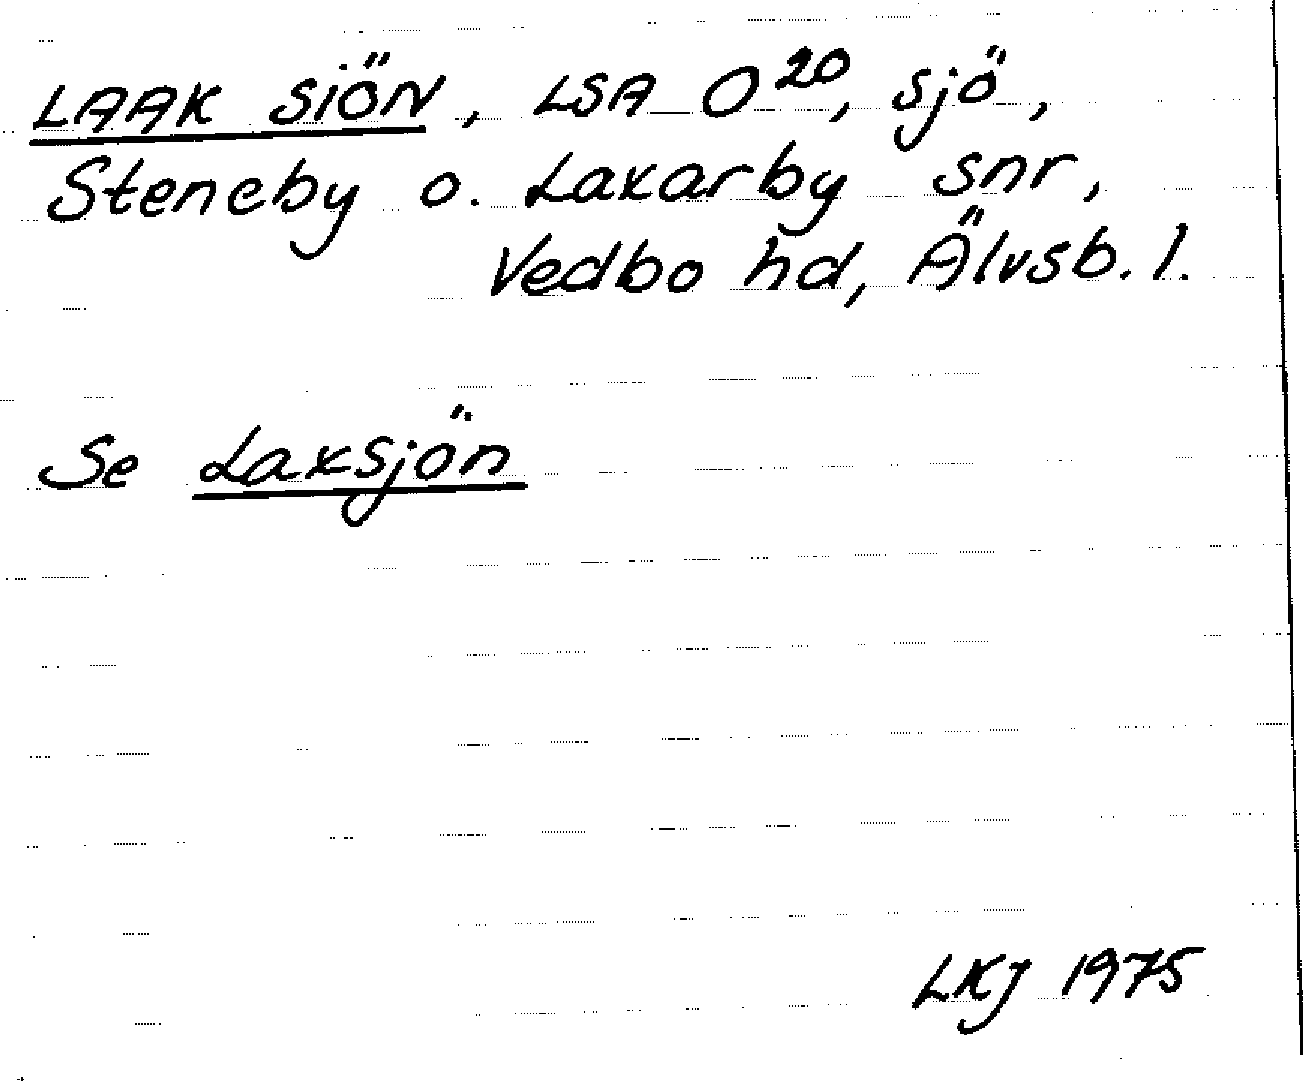 LAAK SIÖN, LSA O²⁰, sjö,
Steneby o. Laxarby snr,
Vedbo hd, Älvsb. l.
Se Laxsjön
LKJ 1975